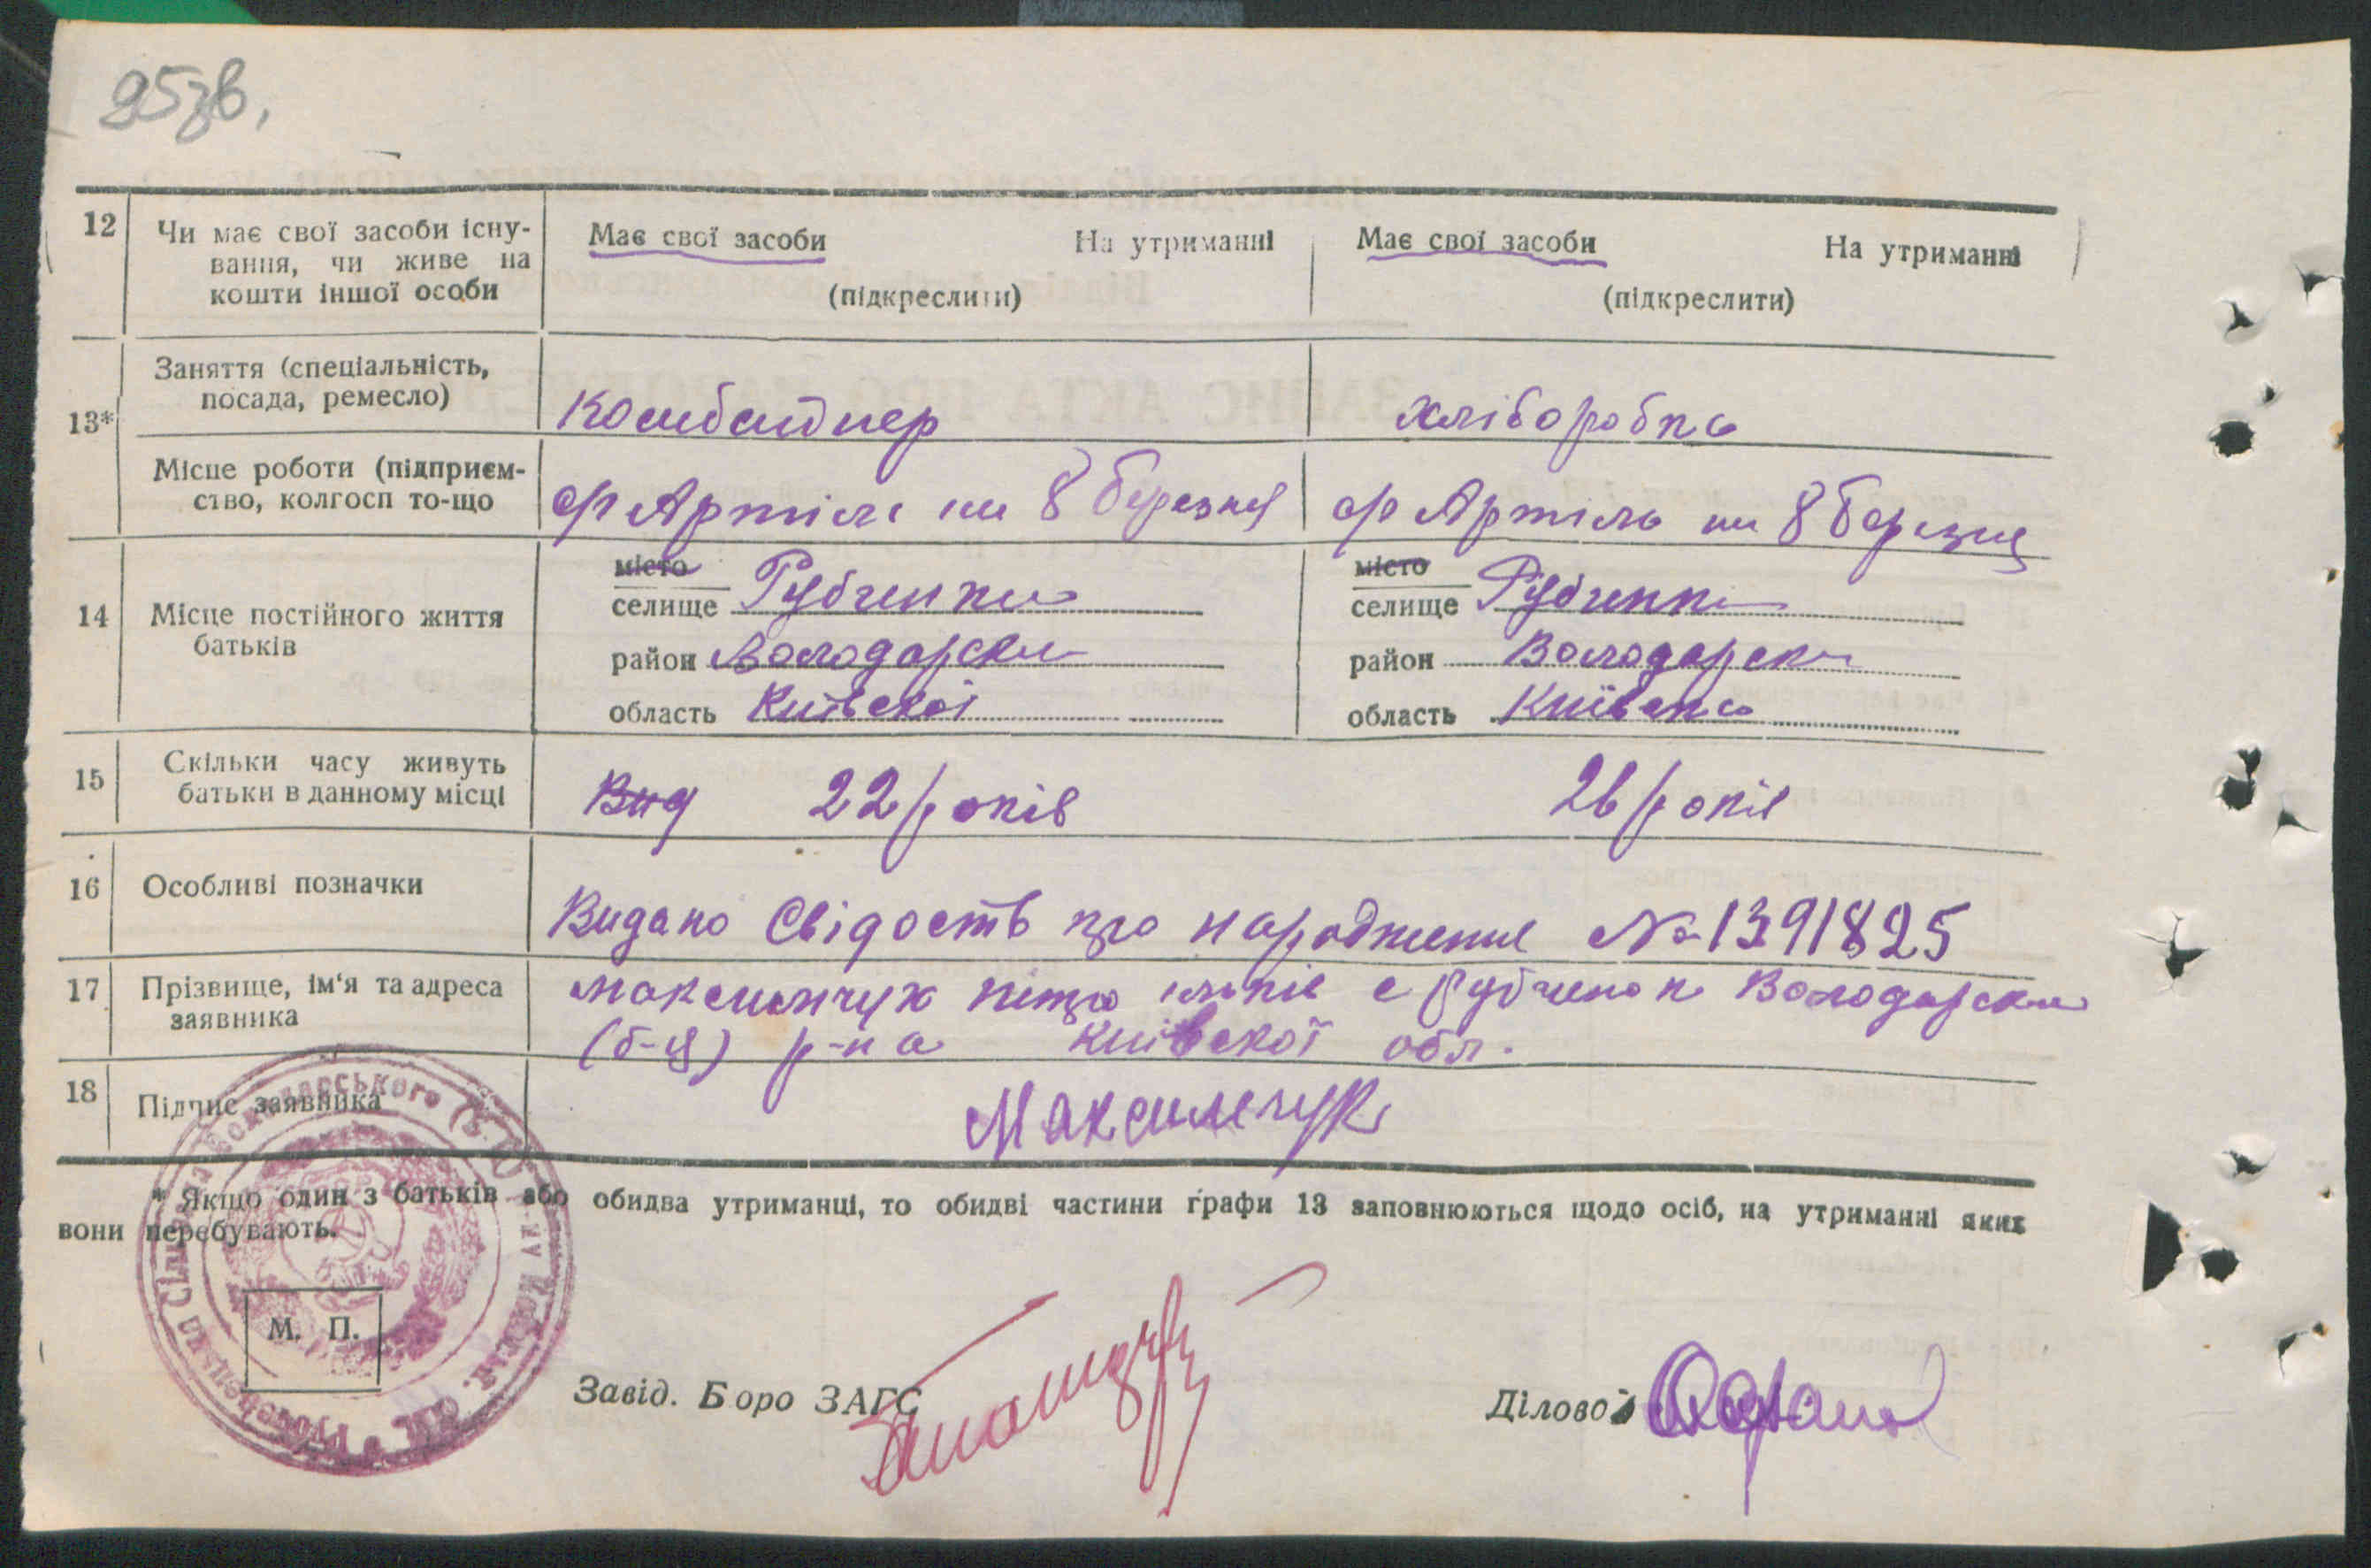 95зв,
12 Чи має свої засоби існу- Має свої засоби На утриманні Має свої засоби На утриманні
вання, чи живе на
кошти іншої особи (підкреслити) (підкреслити)
Заняття (спеціальність,
посада, ремесло) Комбайнер хліборобка
13*
Місце роботи (підприєм-
ство, колгосп то-що с/г Артіль ім 8 березня с/г Артіль ім 8 березня
місто місто
14 Місце постійного життя селище Рубченки селище Рубченки
батьків район Володарськи район Володарськи
область Київської область Київська
15 Скільки часу живуть
батьки в данному місці Вид 22 років 26 років
16 Особливі позначки
Видано Свідоств про народження № 1391825
17 Прізвище, ім'я та адреса Максимчук Петро с Рубченок Володарски
заявника (б-ц) р-на Київскої обл.
18 Підпис заявника Максимчук
* Якщо один з батьків або обидва утриманці, то обидві частини графи 13 заповнюються щодо осіб, на утриманні яких
вони перебувають.
М. П.
Завід. Боро ЗАГС Діловод